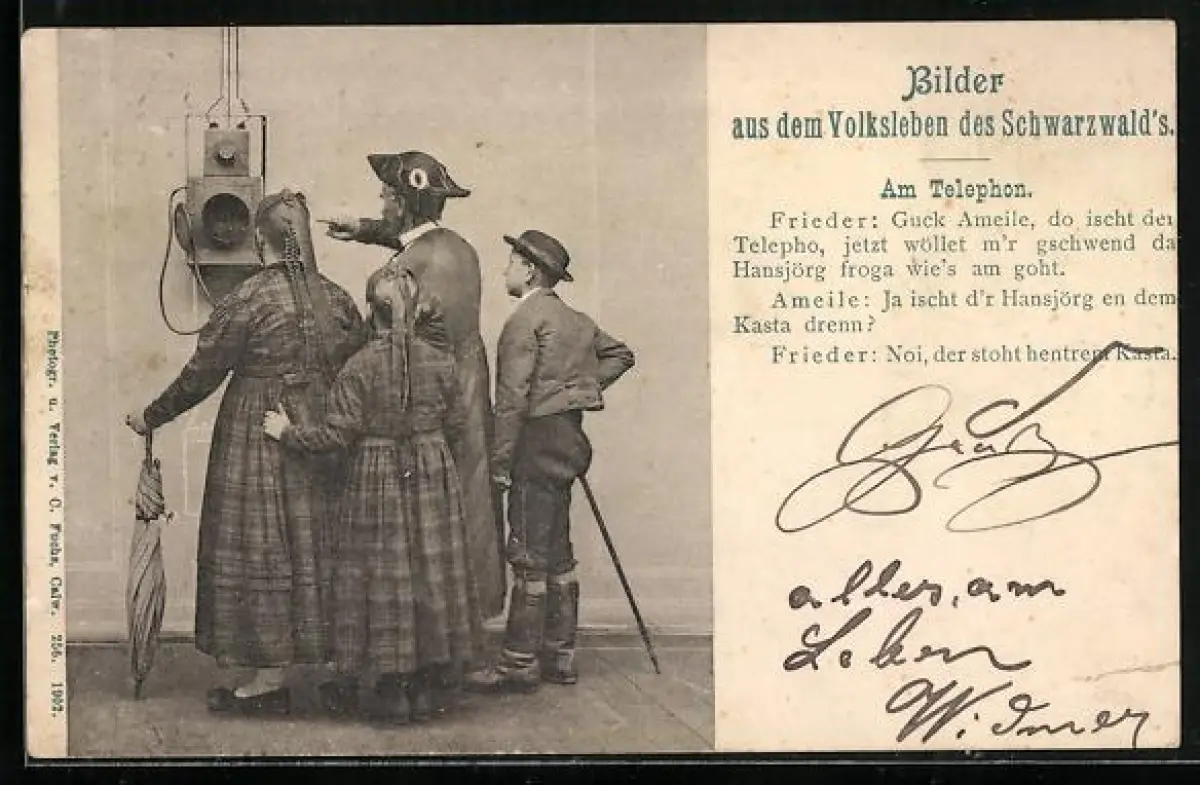 Bilder
aus dem Volksleben des Schwarzwald's.
Am Telephon.
Frieder: Guck Ameile, do ischt der
Telepho, jetzt wöllet m'r gschwend da
Hansjörg froga wie's am goht.
Ameile: Ja ischt d'r Hansjörg en dem
Kasta drenn?
Frieder: Noi, der stoht hentrem Kasta.
alles, am
Leben
Widmer
Photogr. u. Verlag v. C. Fuchs, Calw. 256. 1902.